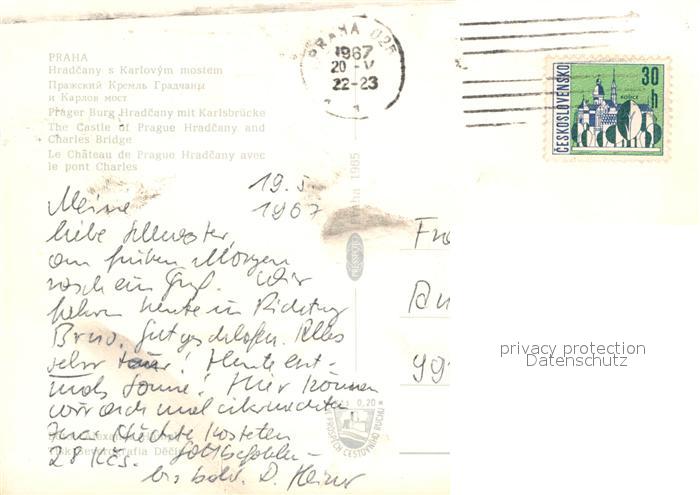 PRAHA
Hradčany s Karlovým mostem
Пражский Кремль Градчаны
и Карлов мост
Prager Burg Hradčany mit Karlsbrücke
The Castle of Prague Hradčany and
Charles Bridge
Le Château de Prague Hradčany avec
le pont Charles
PRAHA 025
1967
20 -V
22-23
ČESKOSLOVENSKO
30 h
KOŠICE
19.5
1967
Meine
liebe Schwester,
am frühen Morgen
rasch ein Gruß. Wir
fahren heute in Richtung
Brno. Gut geschlafen. Alles
sehr teuer! Heute erst-
mals Sonne! Hier können
wir auch mal
Nächte kosteten
28 Kčs.
bis bald. D. Heiner
Praha 1965
PRESSFOTO
Kčs 0,20
VE PROSPĚCH CESTOVNÍHO RUCHU
Fr
An
99
privacy protection
Datenschutz